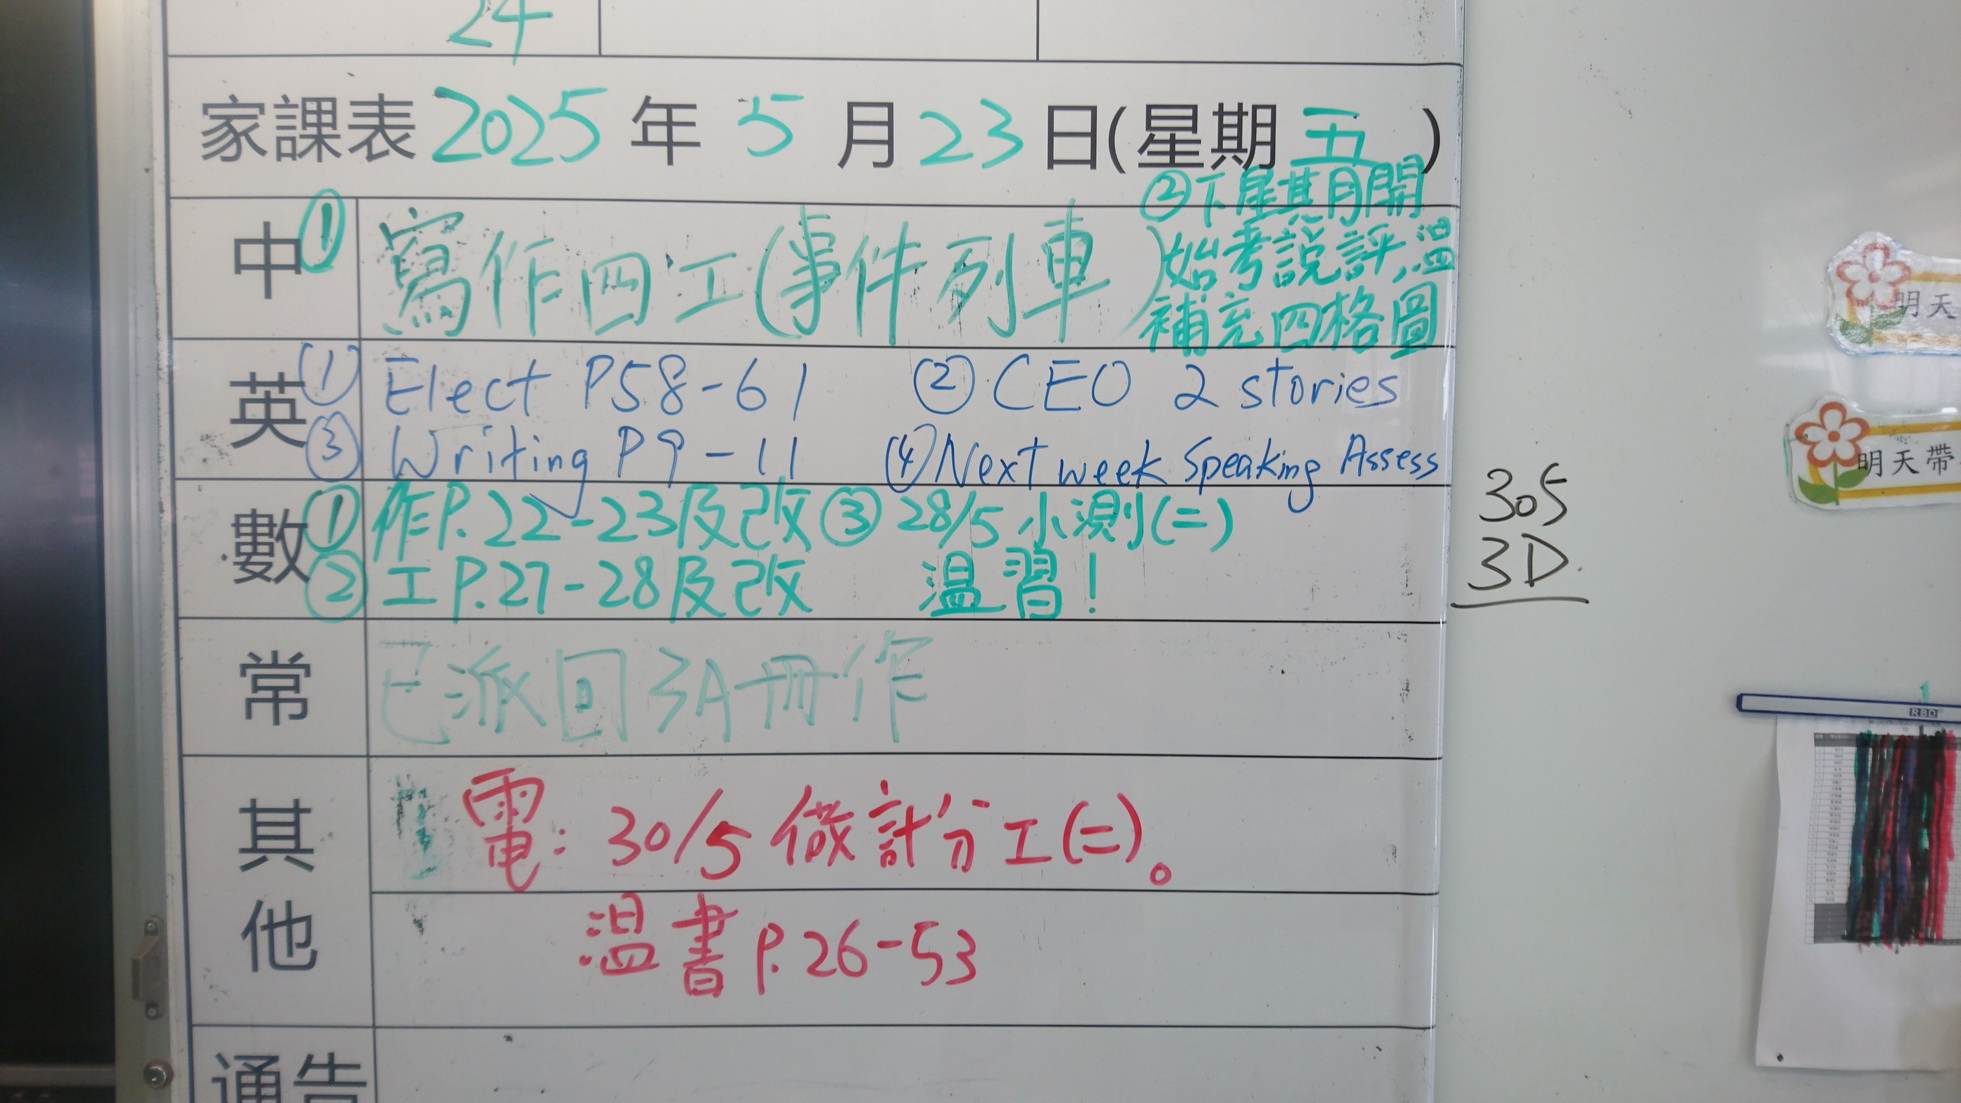 24
家課表 2025 年 5 月 23 日(星期 五 )
中 ① 寫作四工(事件列車)
②下星期開
始考說評,溫
補充四格圖
英 ① Elect P58-61 ② CEO 2 stories
③ Writing P9-11 ④ Next week Speaking Assess
數 ① 作P.22-23及改 ③ 28/5 小測(二)
② 工P.27-28及改 溫習!
常 已派回3A冊作
其他 電: 30/5 做計分工(二)。
溫書 P.26-53
通告
305
3D
明天
明天帶